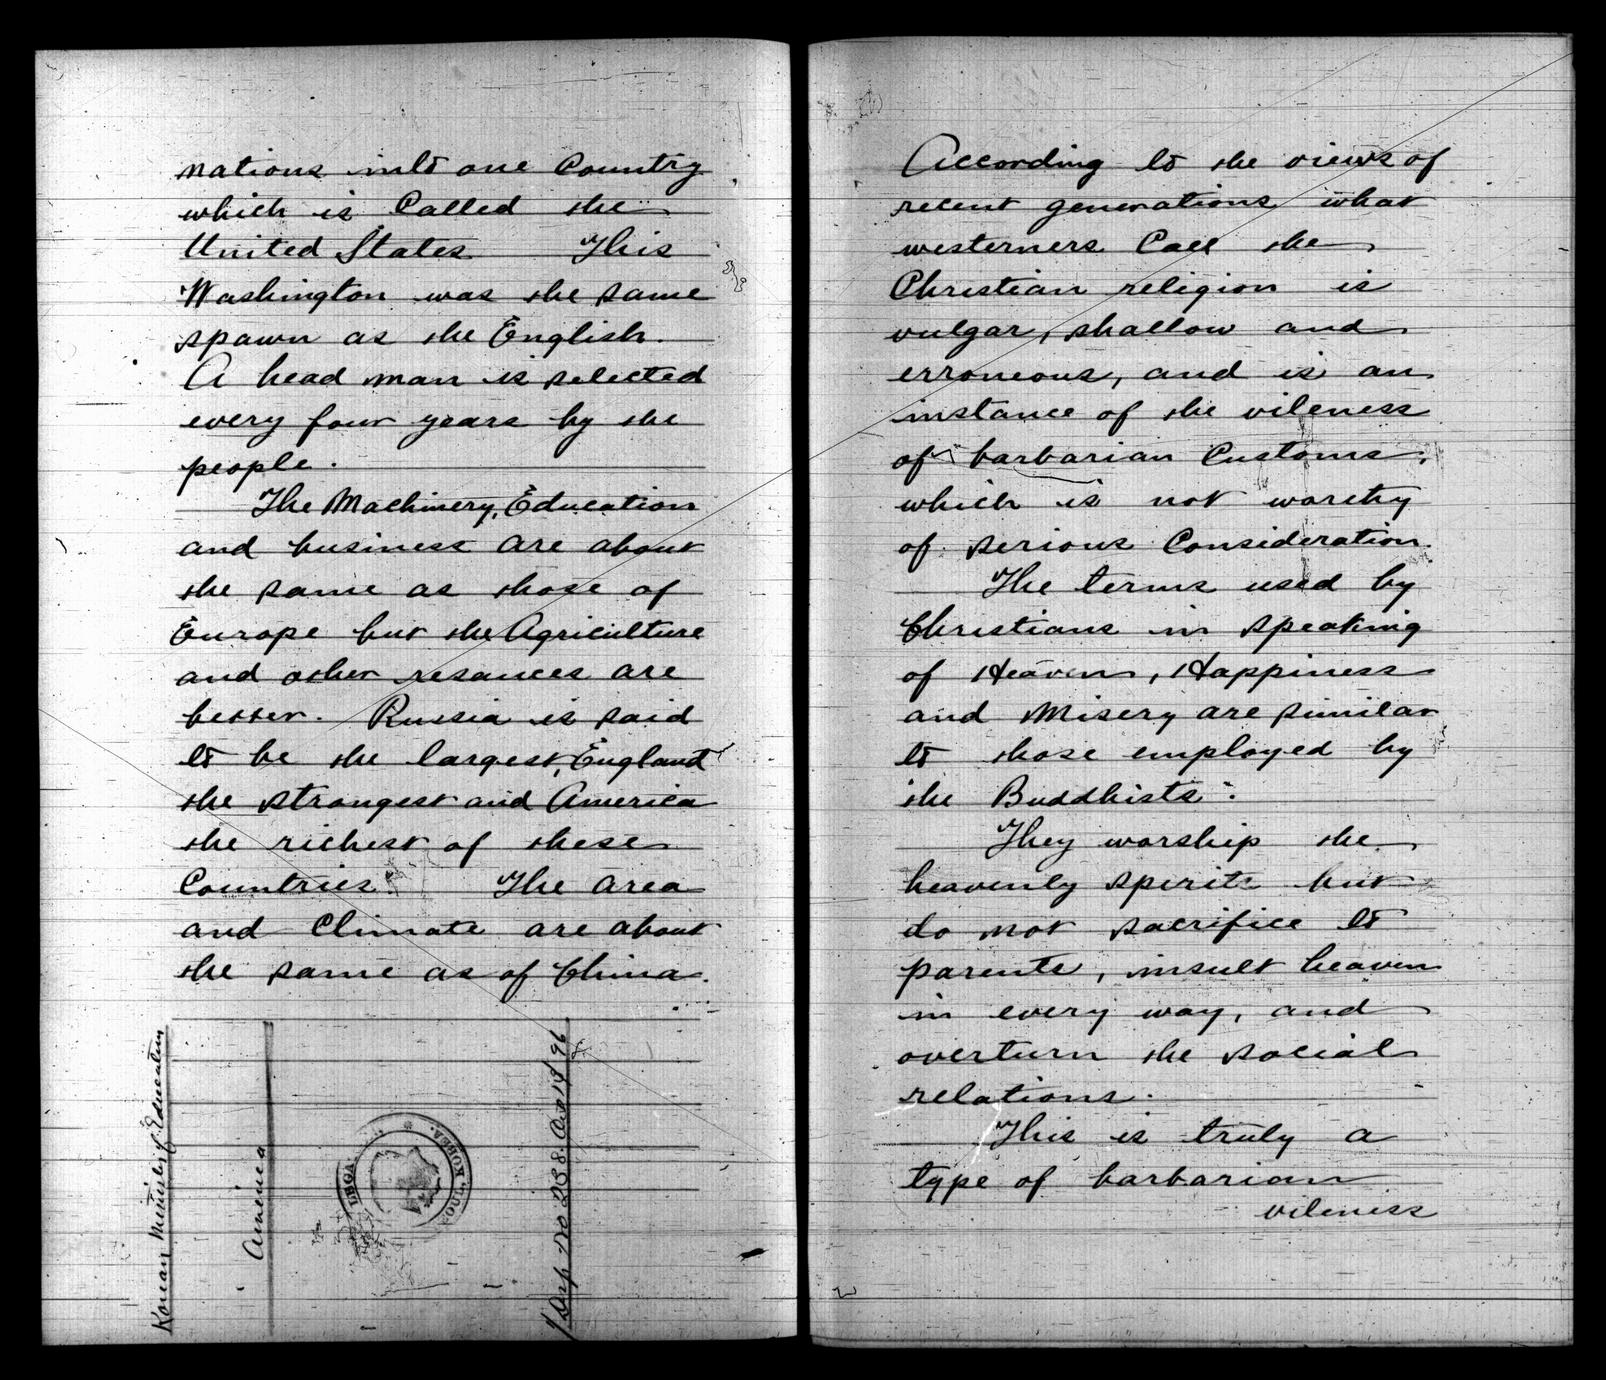 nations into one Country
which is Called the
United States This
Washington was the same
spawn as the English.
A head man is selected
every four years by the
people.
The Machinery, Education
and business are about
the same as those of
Europe but the Agriculture
and other resources are
better. Russia is said
to be the largest, England
the strongest and America
the richest of these
Countries. The area
and Climate are about
the same as of China.
Korean Minister of Education
America
SEOUL, KOREA.
Dsp. No 238. Oct 14 96
According to the views of
recent generations what
westerners Call the
Christian religion is
vulgar, shallow and
erroneous, and is an
instance of the vileness
of barbarian Customs,
which is not worthy
of serious Consideration.
The terms used by
Christians in speaking
of Heaven, Happiness
and Misery are similar
to those employed by
the Buddhists.
They worship the
heavenly spirits but
do not sacrifice to
parents, insult heaven
in every way, and
overturn the social
relations.
This is truly a
type of barbarian
vileness